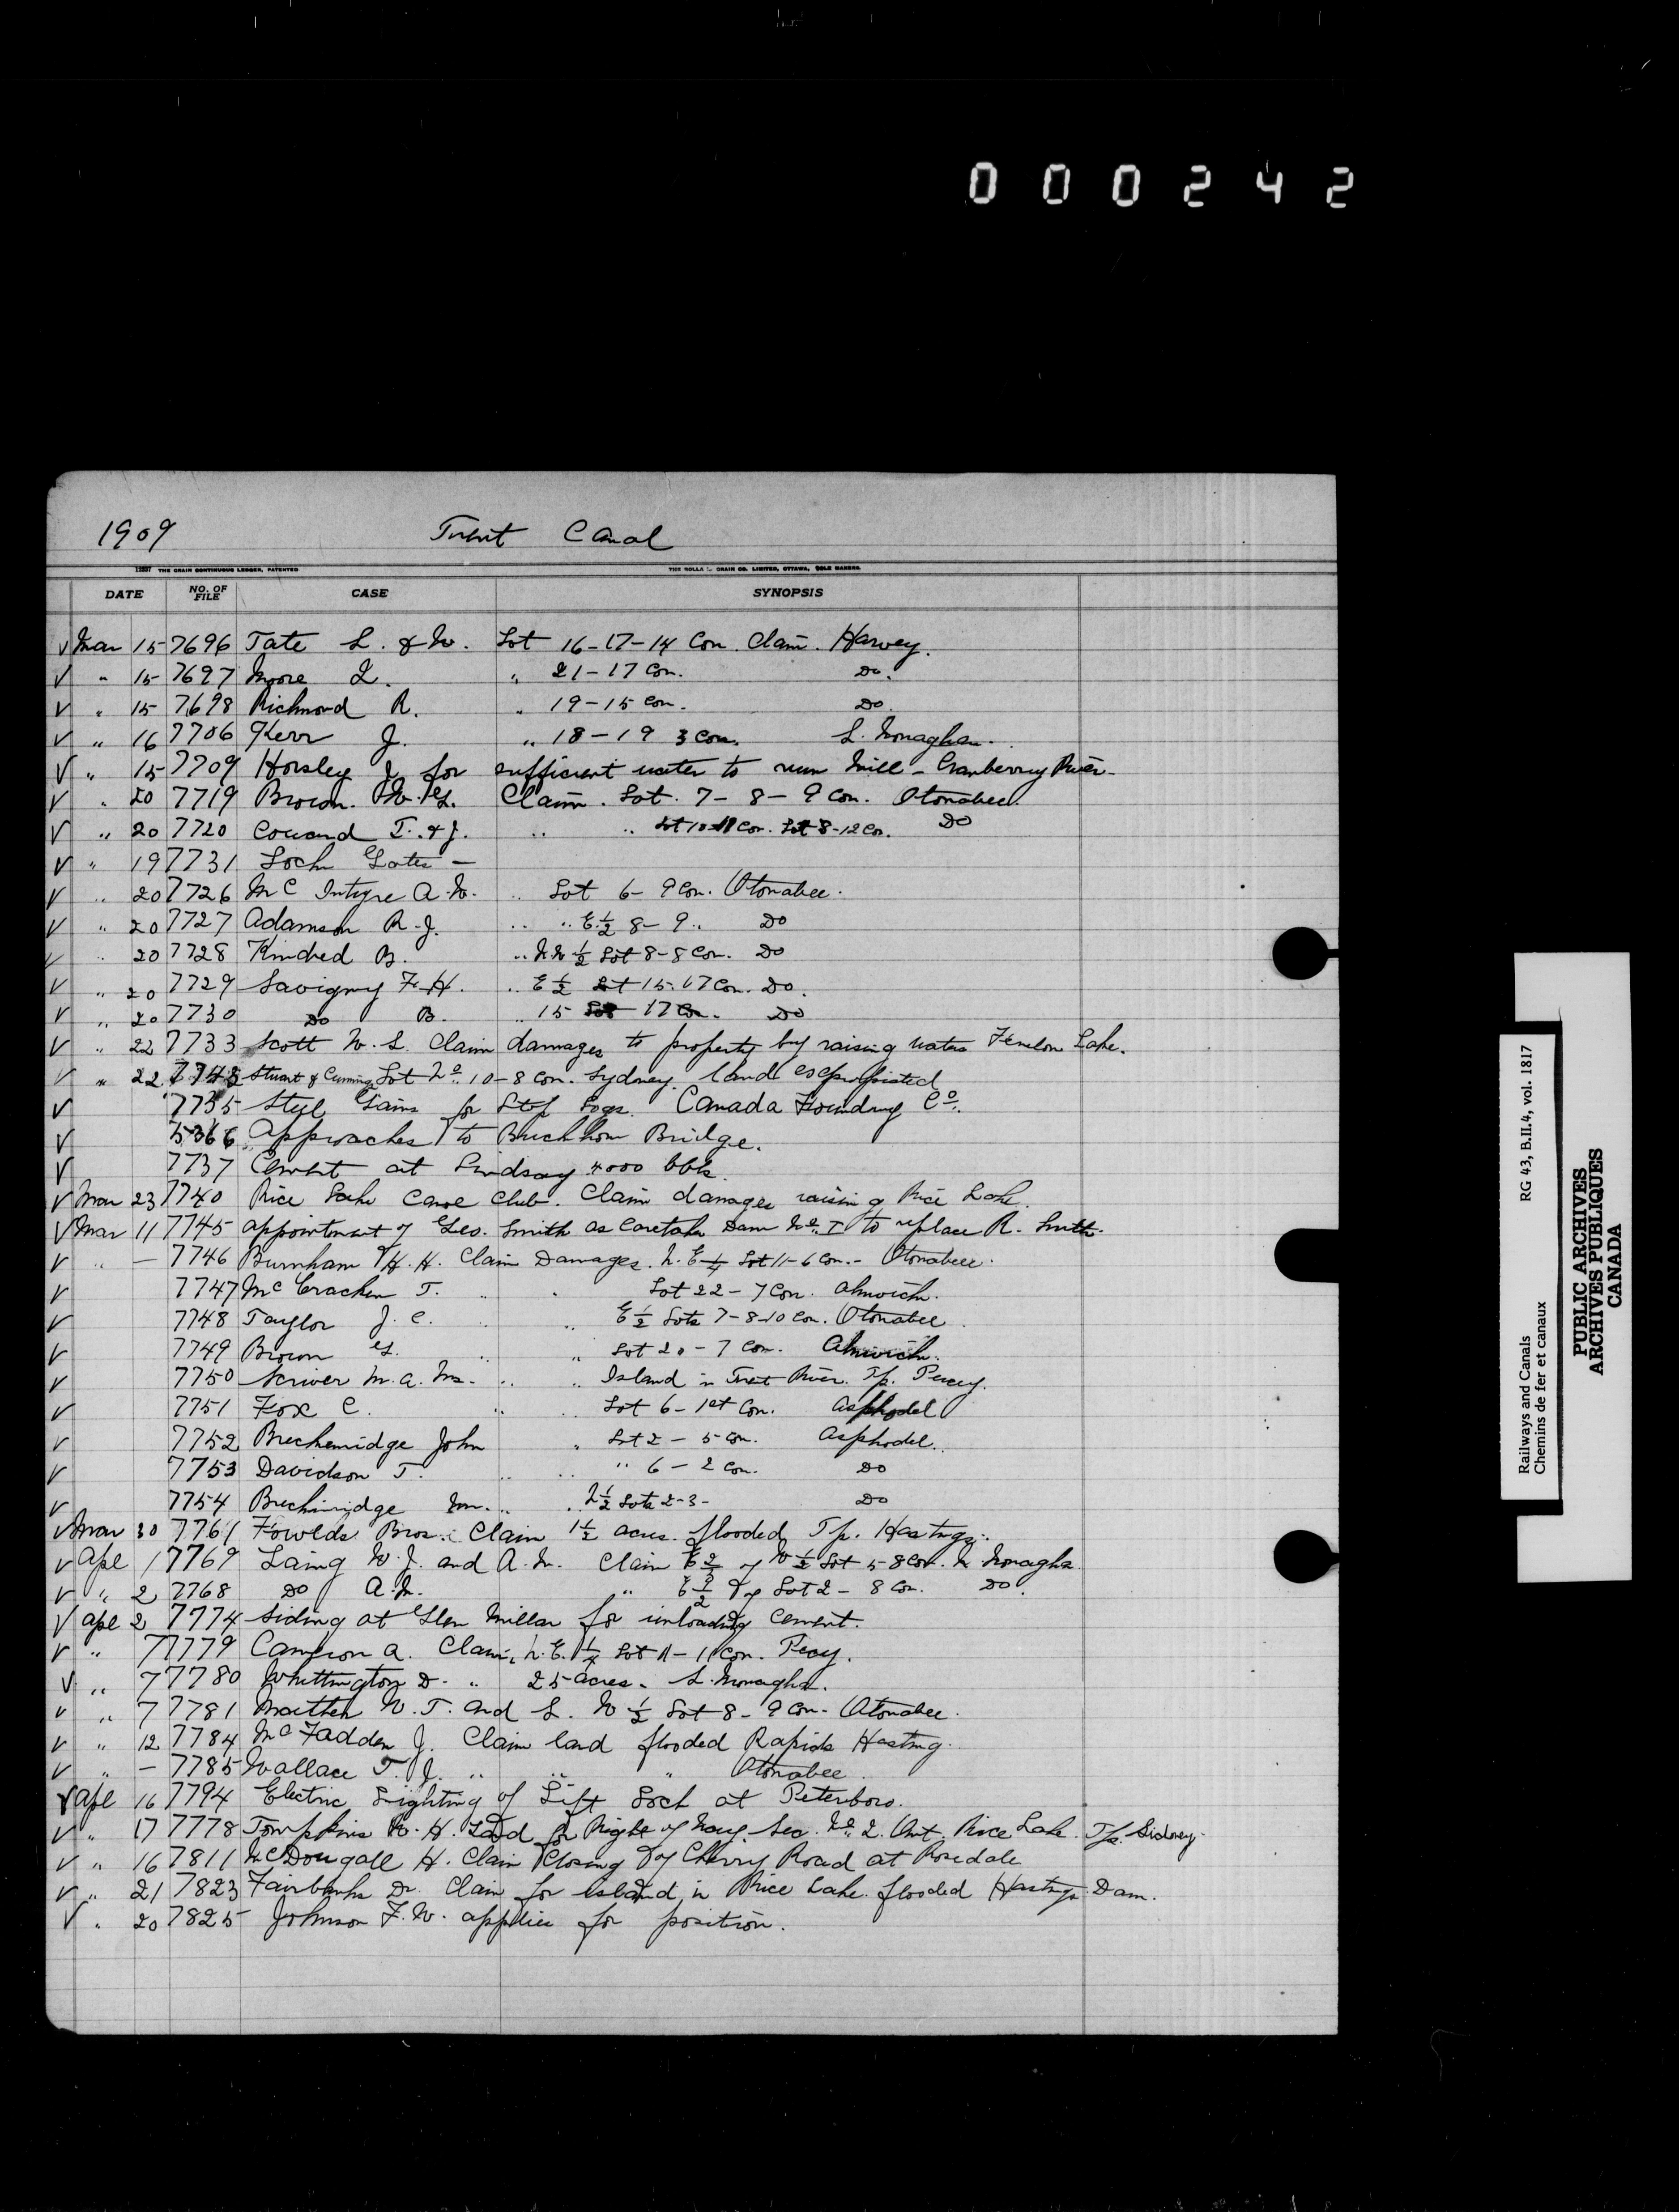 000242
1909 Trent Canal
12237 THE CRAIN CONTINUOUS LEDGER, PATENTED THE ROLLA L. CRAIN CO. LIMITED, OTTAWA, SOLE MAKERS
DATE NO. OF FILE CASE SYNOPSIS
√ Mar 15 7696 Tate L. & W. Lot 16-17-14 Con. Claim. Harvey.
√ " 15 7697 Moore " 21-17 Con. Do.
√ " 15 7698 Richmond R. " 19-15 Con. Do.
√ " 16 7706 Kerr J. " 18-19 3 Con. S. Monaghan.
√ " 15 7709 Horsley J. for sufficient water to run Mill - Cranberry River-
√ " 20 7719 Brown. W. G. Claim. Lot. 7-8-9 Con. Otonabee.
√ " 20 7720 Coward T. & J. " " Lot 10-11 Con. Lot 8-12 Con. Do
√ " 19 7731 Lock Gates -
√ " 20 7726 Mc Intyre A. W. " Lot 6-9 Con. Otonabee.
√ " 20 7727 Adamson R. J. " " E.½ 8-9 " Do
√ " 20 7728 Kindred B. " N.W ½ Lot 8-8 Con. Do
√ " 20 7729 Savigny F. H. " E ½ Lot 15-17 Con. Do.
√ " 20 7730 Do B. " 15 17 Con. Do
√ " 22 7733 Scott W. L. Claim damages to property by raising waters Fenelon Lake.
√ " 22 7743 Stuart & Cumming Lot No. 10-8 Con. Sydney. land expropriated
√ 7735 Steel Gains for Stop Logs. Canada Foundry Co.
√ 5366 Approaches to Buckhorn Bridge.
√ 7737 Cement at Lindsay 4000 bbls.
√ Mar 23 7740 Rice Lake Canoe Club. Claim damages raising Rice Lake.
√ Mar 11 7745 appointment of Geo. Smith as Caretaker Dam No. 1 to replace R. Smith.
√ " - 7746 Burnham H. H. Claim Damages. N. E ¼ Lot 11-6 Con. - Otonabee.
√ 7747 Mc Cracken T. " " Lot 22-7 Con. Alnwich.
√ 7748 Taylor J. C. " " E ½ Lots 7-8-10 Con. Otonabee.
√ 7749 Brown G. " " Lot 20-7 Con. Alnwich.
√ 7750 Scriver M. A. Mrs. " " Island in Trent River. Tp. Percy.
√ 7751 Fox C. " " Lot 6-1st Con. Asphodel
√ 7752 Breckenridge John " Lot 2-5 Con. Asphodel.
√ 7753 Davidson T. " " " 6-2 Con. Do
√ 7754 Breckinridge Wm. " " N½ Lots 2-3- Do
√ Mar 30 7761 Fowlds Bros. Claim 1½ acres. flooded Tp. Hastings.
√ Apl 1 7769 Laing W. J. and A. M. Claim E of W ½ Lot 5-8 Con. N. Monaghan.
√ " 2 7768 Do A. M. " E ½ of Lot 2-8 Con. Do.
√ Apl 2 7774 Siding at Glen Millar for unloading Cement.
√ " 7 7779 Cameron A. Claim, N. E. ¼ Lot 11-11 Con. Percy.
√ " 7 7780 Whittington D. " 25 acres. S. Monaghan.
√ " 7 7781 W. T. and S. W ½ Lot 8-9 Con. Otonabee.
√ " 12 7784 Mc Fadden J. Claim land flooded Rapids Hasting.
√ " - 7785 Wallace T. J. " " " Otonabee.
√ Apl 16 7794 Electric Lighting of Lift Lock at Peterboro.
√ " 17 7778 Tompkins W. H. Land for Right of Way. Sec. No. 2. Ont. Rice Lake. Tp. Sidney.
√ " 16 7811 McDougall H. Claim Closing of Cherry Road at Rosedale
√ " 21 7823 Fairbanks Dr. Claim for island in Rice Lake. flooded Hastings Dam.
√ " 20 7825 Johnson F. W. applies for position.
Railways and Canals RG 43, B.II.4, vol. 1817
Chemins de fer et canaux
PUBLIC ARCHIVES
ARCHIVES PUBLIQUES
CANADA